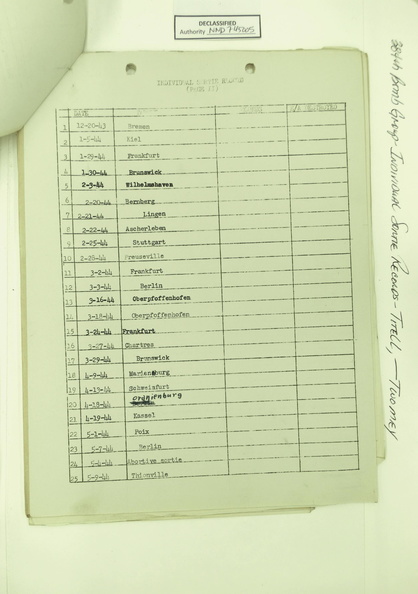 DECLASSIFIED
Authority NND 745005
384th Bomb Group - Individual Sortie Records - Titell, - Twomey
INDIVIDUAL SORTIE RECORD
DATE
1 12-20-43 Bremen
2 1-5-44 Kiel
3 1-29-44 Frankfurt
4 1-30-44 Brunswick
5 2-3-44 Wilhelmshaven
6 2-20-44 Bernberg
7 2-21-44 Lingen
8 2-22-44 Ascherleben
9 2-25-44 Stuttgart
10 2-28-44
11 3-2-44 Frankfurt
12 3-3-44 Berlin
13 3-16-44 Oberpfoffenhofen
14 3-18-44 Oberpfoffenhofen
15 3-24-44 Frankfurt
16 3-27-44 Chartres
17 3-29-44 Brunswick
18 4-9-44 Marienburg
19 4-13-44 Schweinfurt
20 4-18-44 Oranienburg
21 4-19-44 Kassel
22 5-1-44 Poix
23 5-7-44 Berlin
24 5-4-44 Abortive sortie
25 5-9-44 Thionville